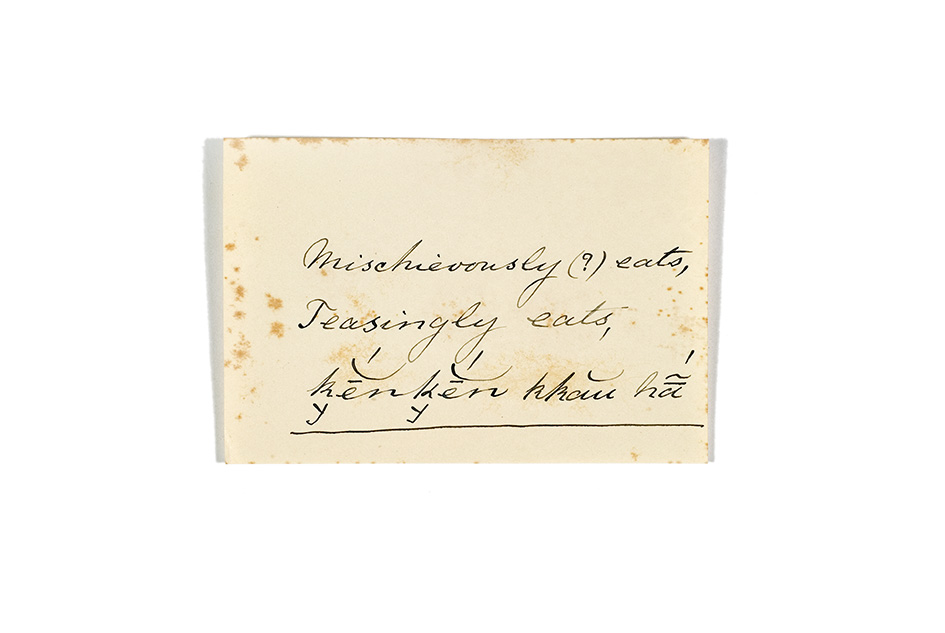 Mischievously (?) eats,
Teasingly eats,
ḵy̆ē̆́nḵy̆ē̆́n khău hā̃́